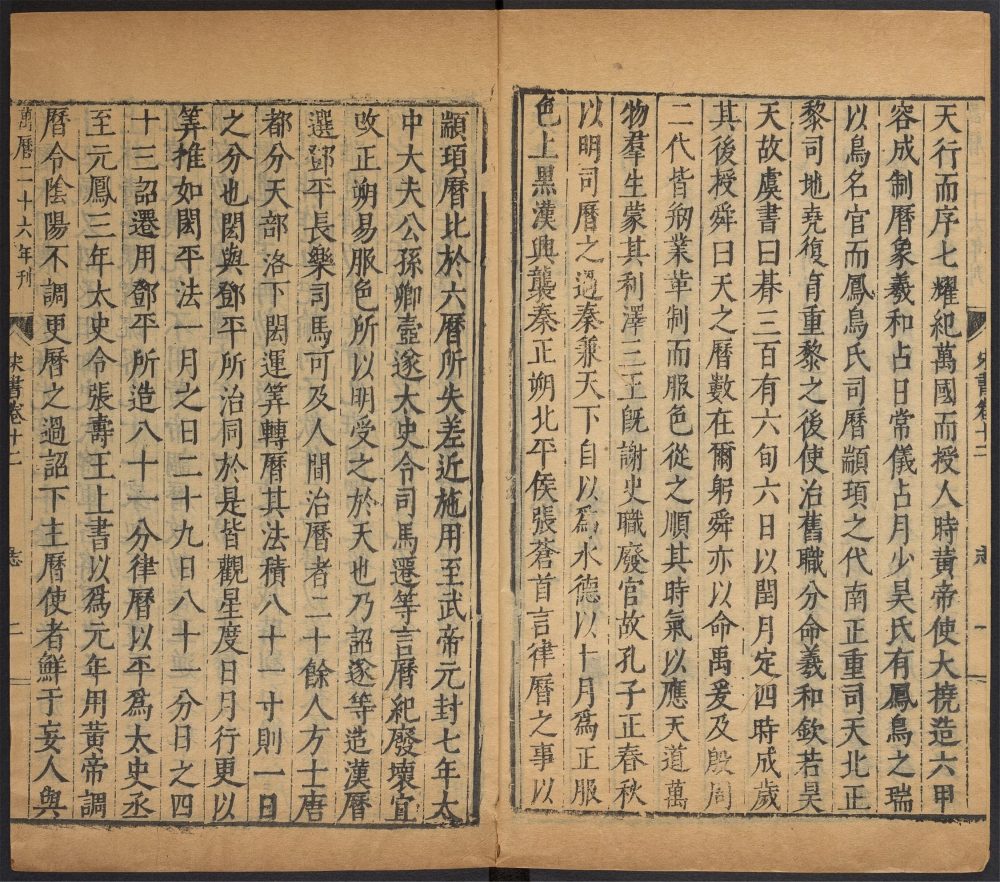 天行而序七耀紀萬國而授人時黃帝使大撓造六甲
容成制曆象羲和占日常儀占月少昊氏有鳳鳥之瑞
以鳥名官而鳳鳥氏司曆顓頊之代南正重司天北正
黎司地堯復育重黎之後使治舊職分命羲和欽若昊
天故虞書曰朞三百有六旬六日以閏月定四時成歲
其後授舜曰天之曆數在爾躬舜亦以命禹爰及殷周
二代皆剏業革制而服色從之順其時氣以應天道萬
物羣生蒙其利澤三王旣謝史職廢官故孔子正春秋
以明司曆之過秦兼天下自以爲水德以十月爲正服
色上黑漢興襲秦正朔北平侯張蒼首言律曆之事以
宋書卷十二 志 一
顓頊曆比於六曆所失差近施用至武帝元封七年太
中大夫公孫卿壺遂太史令司馬遷等言曆紀廢壞宜
改正朔易服色所以明受之於天也乃詔遂等造漢曆
選鄧平長樂司馬可及人閒治曆者二十餘人方士唐
都分天部洛下閎運筭轉曆其法積八十一寸則一日
之分也閎與鄧平所治同於是皆觀星度日月行更以
筭推如閎平法一月之日二十九日八十一分日之四
十三詔遷用鄧平所造八十一分律曆以平爲太史丞
至元鳳三年太史令張壽王上書以爲元年用黃帝調
曆令陰陽不調更曆之過詔下主曆使者鮮于妄人與
萬曆二十六年刊 宋書卷十二 志 二